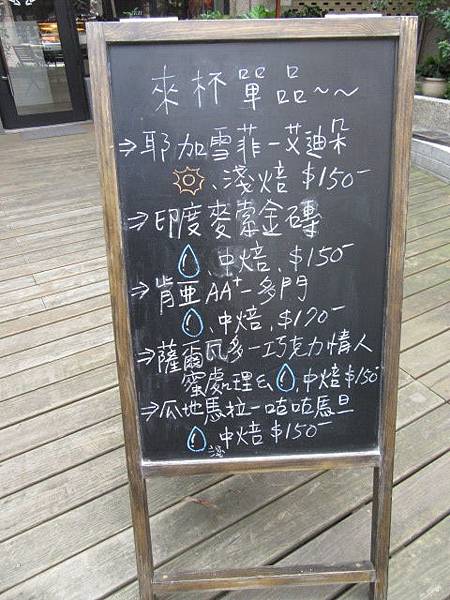 來杯單品~~
⇒耶加雪菲-艾迪朵
、淺焙 $150-
⇒印度麥霖金磚
、中焙、$150-
⇒肯亞AA+-多門
、中焙、$170-
⇒薩爾瓦多-巧克力情人
蜜處理、中焙$150-
⇒瓜地馬拉-咕咕馬旦
中焙$150-
淺